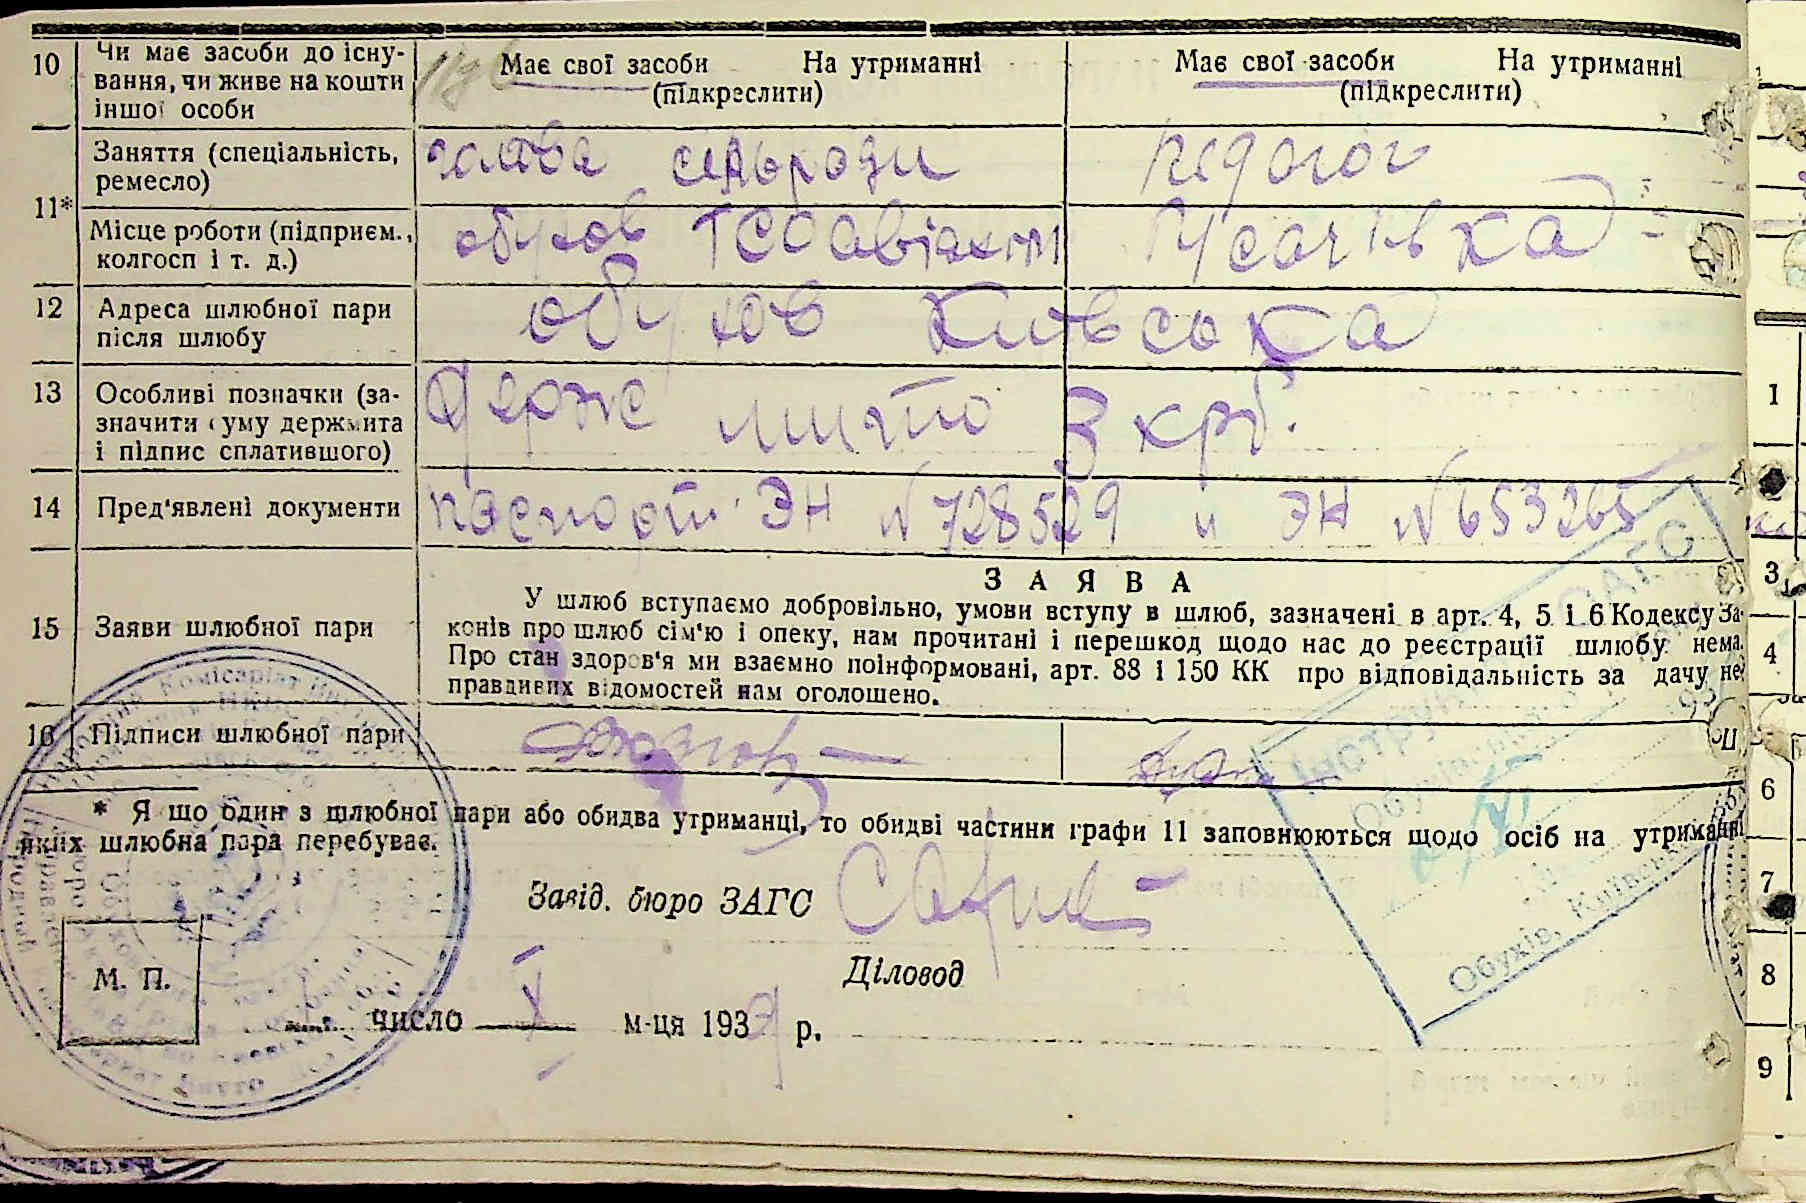 10 Чи має засоби до існу- Має свої засоби На утриманні Має свої засоби На утриманні
вання, чи живе на кошти (підкреслити) (підкреслити)
іншої особи
11* Заняття (спеціальність, голова сільради педагог
ремесло)
Місце роботи (підприєм., обухов ТСОавіахім Гусачівка
колгосп і т. д.)
12 Адреса шлюбної пари обухов Київська
після шлюбу
13 Особливі позначки (за- Держ мито 3 крб.
значити суму держмита
і підпис сплатившого)
14 Пред'явлені документи паспорт ЭН № 728529 и ЭН № 653265
ЗАЯВА
15 Заяви шлюбної пари У шлюб вступаємо добровільно, умови вступу в шлюб, зазначені в арт. 4, 5 і 6 Кодексу За-
конів про шлюб сім'ю і опеку, нам прочитані і перешкод щодо нас до реєстрації шлюбу нема.
Про стан здоров'я ми взаємно поінформовані, арт. 88 і 150 КК про відповідальність за дачу не-
правдивих відомостей нам оголошено.
16 Підписи шлюбної пари
* Я що один з шлюбної пари або обидва утриманці, то обидві частини графи 11 заповнюються щодо осіб на утриманні
яких шлюбна пара перебуває.
Завід. бюро ЗАГС
М. П.
Діловод
число X м-ця 1939 р.
ЗАГС
Обухів, Київськ
1
3
4
6
7
8
9